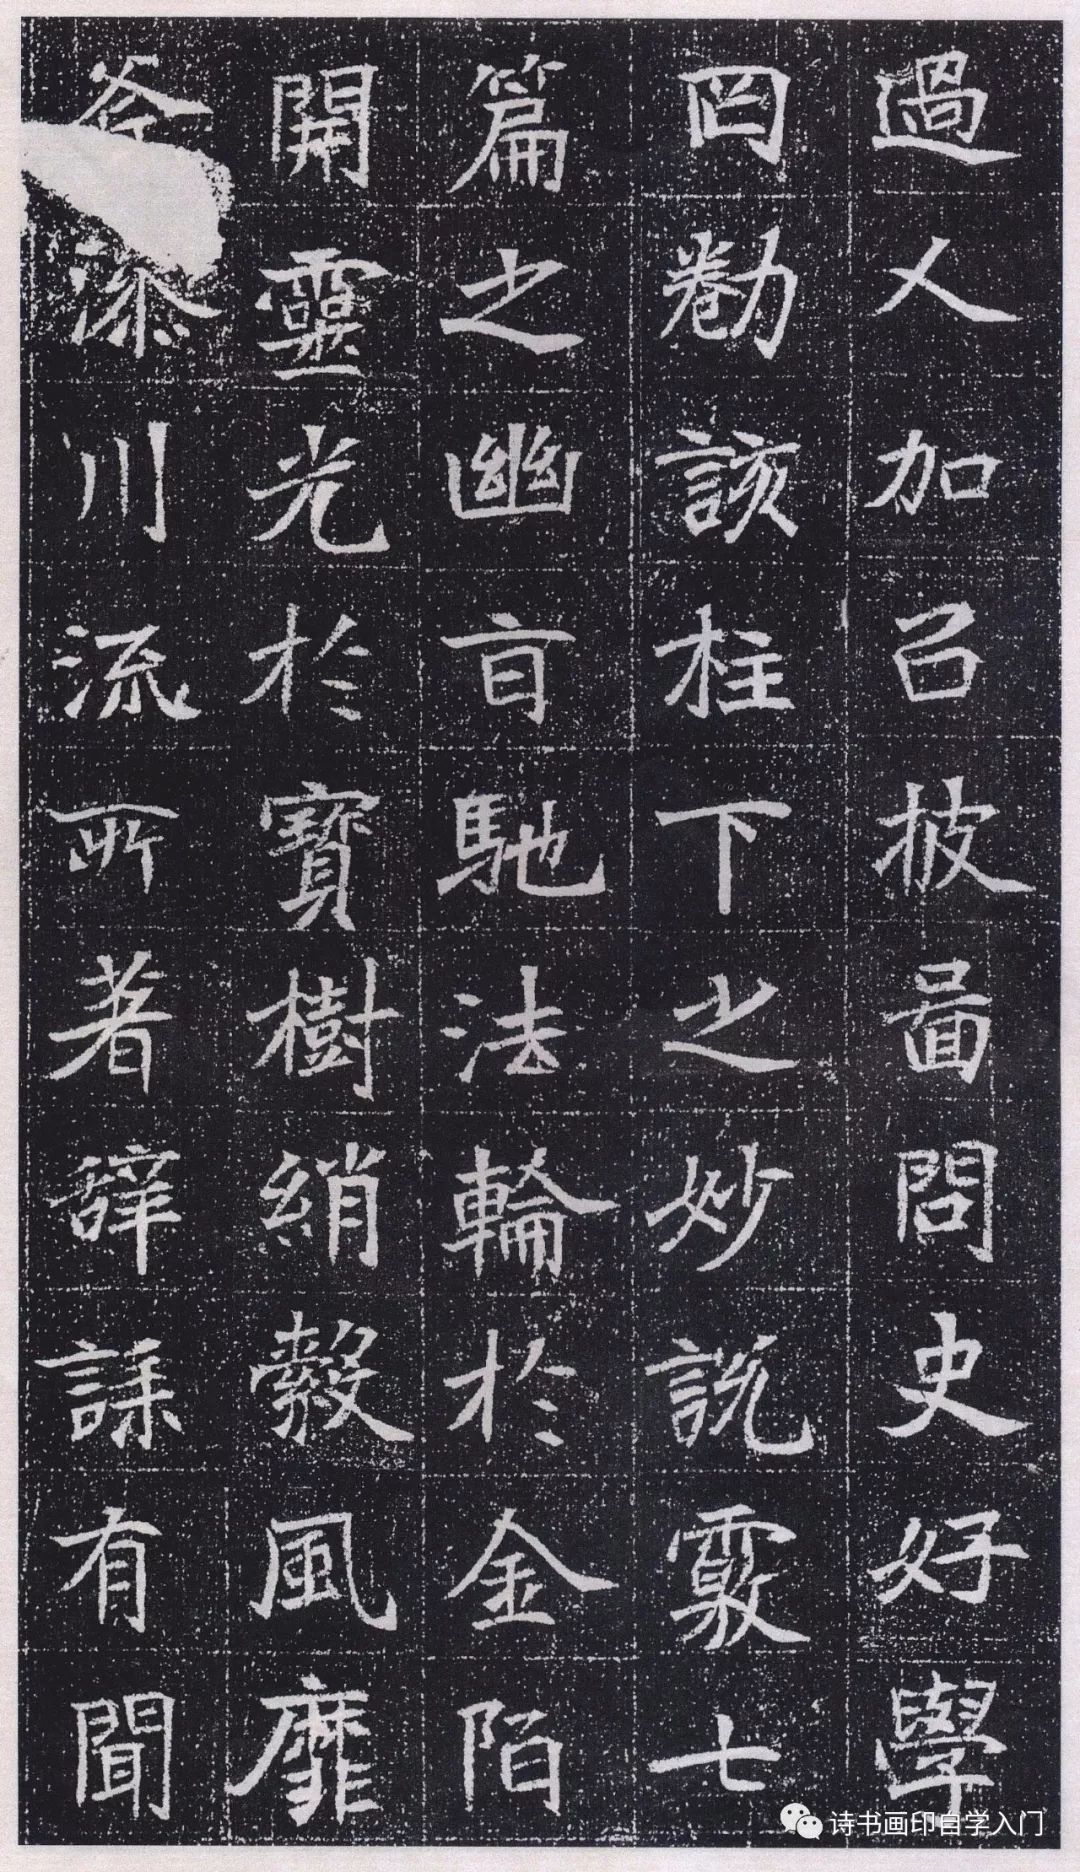 過人加㠯披啚問史好學
罔勌該柱下之妙説覈七
篇之幽旨馳法輪於金陌
開靈光於寶樹綃縠風靡
川流所著辝誄有聞
诗书画印自学入门